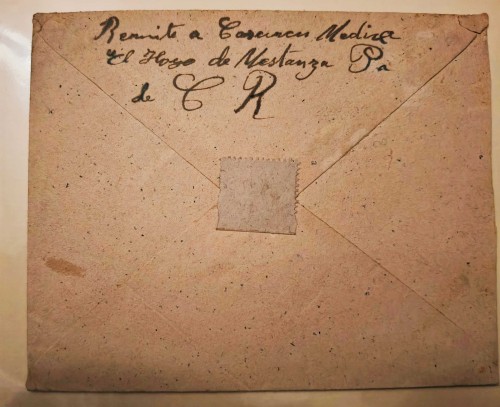 Remite a Medica
El Hoyo de Mestanza Pa
de C R